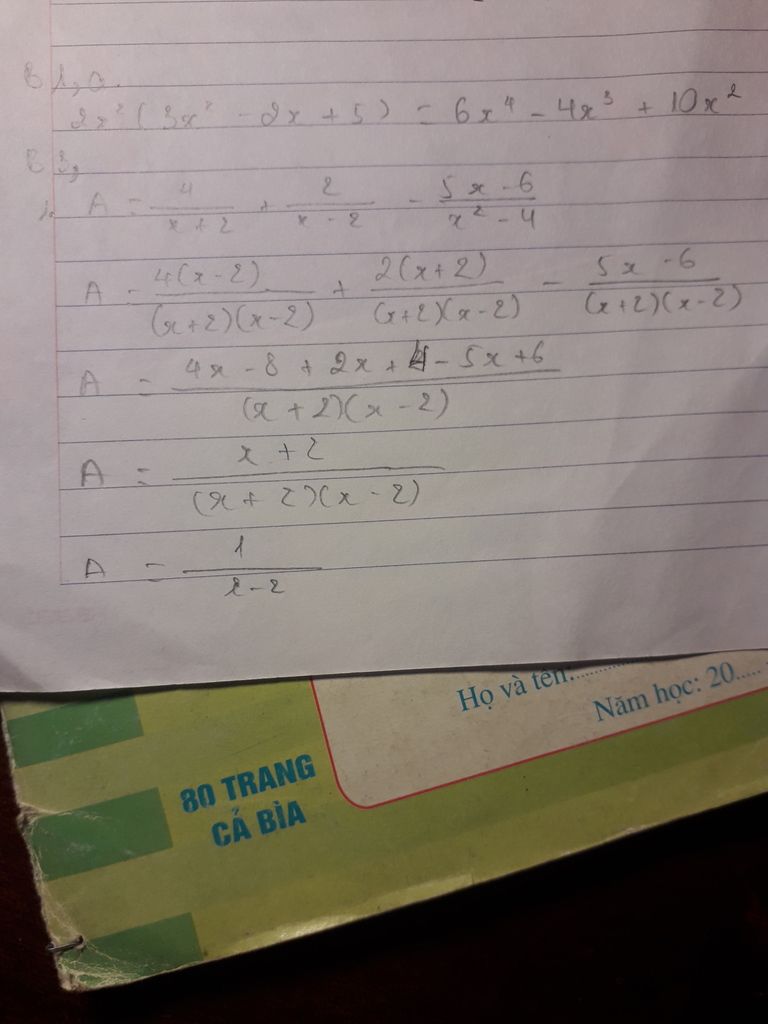 B 1, a.
2x² (3x² - 2x + 5) = 6x⁴ - 4x³ + 10x²
B 3,
1. A = 4/(x + 2) + 2/(x - 2) - (5x - 6)/(x² - 4)
A = 4(x - 2)/((x+2)(x-2)) + 2(x+2)/((x+2)(x-2)) - (5x - 6)/((x+2)(x-2))
A = (4x - 8 + 2x + 4 - 5x + 6)/((x + 2)(x - 2))
A = (x + 2)/((x + 2)(x - 2))
A = 1/(x - 2)
Họ và tên:..........
Năm học: 20.....
80 TRANG
CẢ BÌA